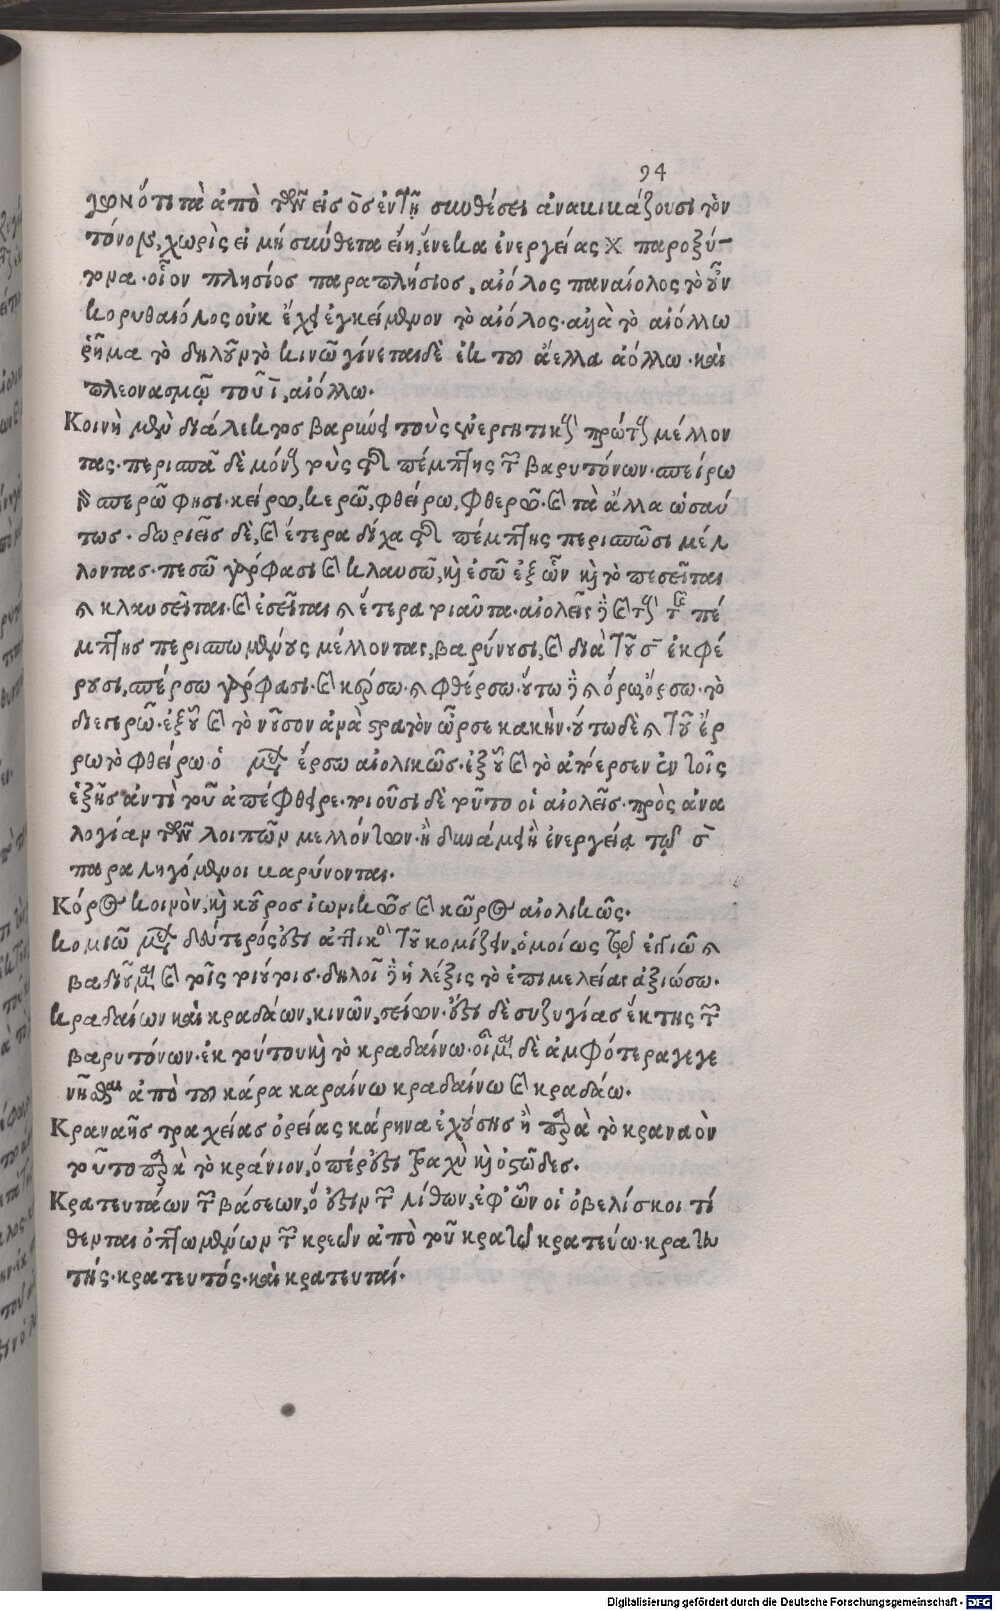 94
ὅτι τὰ ἀπὸ τῶν εἰς ος ἐν τῇ συνθέσει ἀναβιβάζουσι τὸν
τόνον, χωρὶς εἰ μὴ σύνθετα εἴη, ἕνεκα ἐνεργείας παροξύ-
τονα. οἷον πλησίος παραπλήσιος, αἰόλος παναίολος τὸ οὖν
κορυθαιόλος οὐκ ἔχει ἐγκείμενον τὸ αἰόλος. ἀλλὰ τὸ αἰόλλω
ῥῆμα τὸ δηλοῦν τὸ κινῶ γίνεται δὲ ἐκ τοῦ ἄελλα ἀόλλω. καὶ
πλεονασμῷ τοῦ ϊ, αἰόλλω.
Κοινὴ μὲν διάλεκτος βαρύνει τοὺς ἐνεργητικοὺς πρώτους μέλλον
τας. περισπᾶ δὲ μόνους τοὺς τῆς πέμπτης τῶν βαρυτόνων. σπείρω
σπερῶ φησι. κείρω, κερῶ, φθείρω, φθερῶ. καὶ τὰ ἄλλα ὡσαύ
τως. δωριεῖς δὲ, καὶ ἕτερα δίχα τῆς πέμπτης περισπῶσι μέλ
λοντας. πεσῶ γάρ φασι καὶ κλαυσῶ, καὶ ἐσῶ ἐξ ὧν καὶ τὸ πεσεῖται
καὶ κλαυσεῖται. καὶ ἐσεῖται καὶ ἕτερα τοιαῦτα. αἰολεῖς δὲ καὶ τοὺς τῆς πέ
μπτης περισπωμένους μέλλοντας, βαρύνουσι, καὶ διὰ τοῦ σ ἐκφέ
ρουσι, σπέρσω γάρ φασι. καὶ κέρσω. καὶ φθέρσω. οὕτω δὲ καὶ ὄρω, ὄρσω. τὸ
διεγερῶ. ἐξ οὗ καὶ τὸ νοῦσον ἀνὰ στρατὸν ὦρσε κακήν. οὕτω δὲ καὶ τοῦ ἔρ
ρω τὸ φθείρω. ὁ μέλλων ἔρσω αἰολικῶς. ἐξ οὗ καὶ τὸ ἀπόερσεν ἐν τοῖς
ἑξῆς ἀντὶ τοῦ ἀπέφθειρε. ποιοῦσι δὲ τοῦτο οἱ αἰολεῖς. πρὸς ἀνα
λογίαν τῶν λοιπῶν μελλόντων. ἢ δυνάμει ἢ ἐνεργείᾳ τῷ σ
παραληγόμενοι βαρύνονται.
Κόρος κοινὸν, καὶ κοῦρος ἰωνικῶς καὶ κῶρος αἰολικῶς.
κομιῶ μέλλων δεύτερός ἐστι ἀττικὸς τοῦ κομίζειν, ὁμοίως τῷ ἐδιῶ καὶ
βαδιοῦμαι καὶ τοῖς τοιούτοις. δηλοῖ δὲ ἡ λέξις τὸ ἐπιμελείας ἀξιώσω.
κραδαίων καὶ κραδάων, κινῶν, σείων. ἔστι δὲ συζυγίας ἕκτης τῶν
βαρυτόνων. ἐκ τούτου καὶ τὸ κραδαίνω. οἶμαι δὲ ἀμφότερα γεγε
νῆσθαι ἀπὸ τοῦ κάρα καραίνω κραδαίνω καὶ κραδάω.
Κραναῆς τραχείας ὀρείας κάρηνα ἐχούσης ἢ παρὰ τὸ κραναὸν
τοῦτο παρὰ τὸ κράνιον, ὅπέρ ἐστι τραχὺ καὶ ὀστῶδες.
Κρατευτάων τῶν βάσεων, ὅ ἐστιν τῶν λίθων, ἐφ' ὧν οἱ ὀβελίσκοι τί
θενται ὀπτωμένων τῶν κρεῶν ἀπὸ τοῦ κρατῶ κρατεύω. κρατευ
τής. κρατευτός. καὶ κρατευταί.
Digitalisierung gefördert durch die Deutsche Forschungsgemeinschaft - DFG